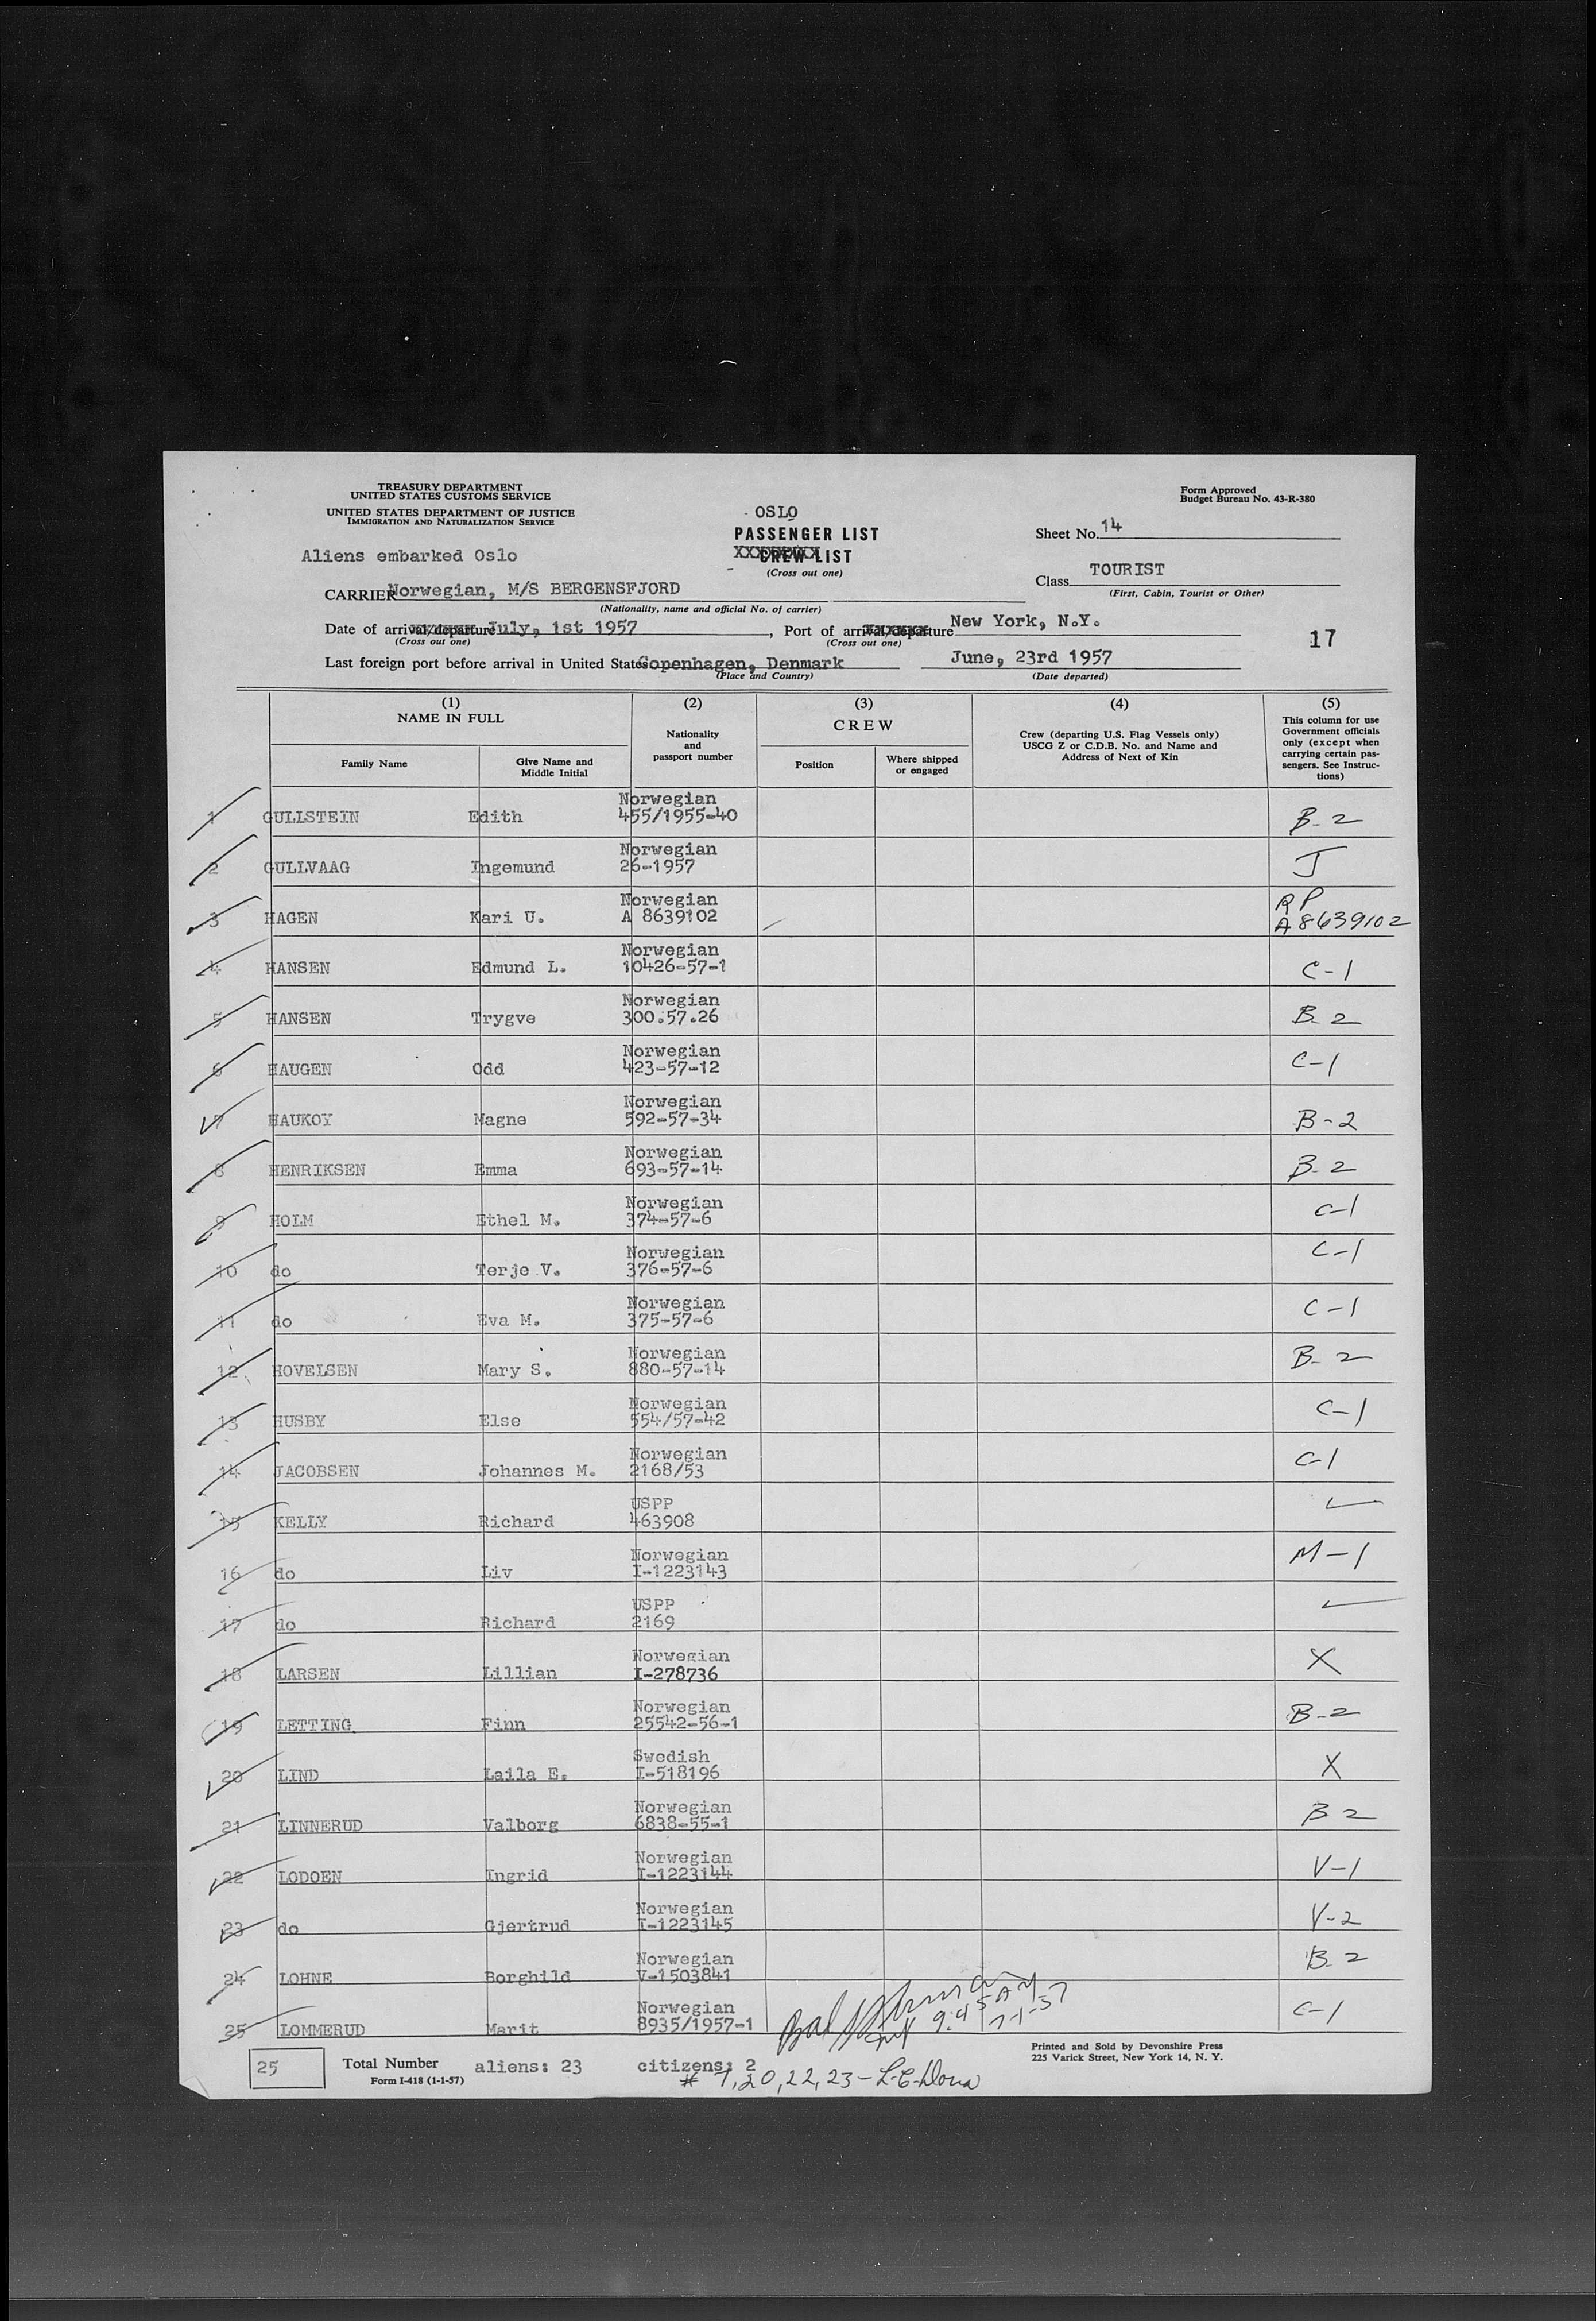 TREASURY DEPARTMENT
UNITED STATES CUSTOMS SERVICE
UNITED STATES DEPARTMENT OF JUSTICE
IMMIGRATION AND NATURALIZATION SERVICE
Form Approved
Budget Bureau No. 43-R-380
OSLO
PASSENGER LIST
CREW LIST
(Cross out one)
Sheet No. 14
Aliens embarked Oslo
Class TOURIST
(First, Cabin, Tourist or Other)
CARRIER Norwegian, M/S BERGENSFJORD
(Nationality, name and official No. of carrier)
Date of arrival/departure July, 1st 1957, Port of arrival/departure New York, N.Y.
(Cross out one) (Cross out one)
17
Last foreign port before arrival in United States Copenhagen, Denmark June, 23rd 1957
(Place and Country) (Date departed)
(1) NAME IN FULL
Family Name
Give Name and Middle Initial
(2) Nationality and passport number
(3) CREW
Position
Where shipped or engaged
(4) Crew (departing U.S. Flag Vessels only) USCG Z or C.D.B. No. and Name and Address of Next of Kin
(5) This column for use Government officials only (except when carrying certain passengers. See Instructions)
1 GULLSTEIN Edith Norwegian 455/1955-40 B-2
2 GULLVAAG Ingemund Norwegian 26-1957 J
3 HAGEN Kari U. Norwegian A 8639102 RP A8639102
4 HANSEN Edmund L. Norwegian 10426-57-1 C-1
5 HANSEN Trygve Norwegian 300.57.26 B-2
6 HAUGEN Odd Norwegian 423-57-12 C-1
7 HAUKOY Magne Norwegian 592-57-34 B-2
8 HENRIKSEN Emma Norwegian 693-57-14 B-2
9 HOLM Ethel M. Norwegian 374-57-6 C-1
10 do Terje V. Norwegian 376-57-6 C-1
11 do Eva M. Norwegian 375-57-6 C-1
12 HOVELSEN Mary S. Norwegian 880-57-14 B-2
13 HUSBY Else Norwegian 554/57-42 C-1
14 JACOBSEN Johannes M. Norwegian 2168/53 C-1
15 KELLY Richard USPP 463908
16 do Liv Norwegian I-1223143 M-1
17 do Richard USPP 2169
18 LARSEN Lillian Norwegian I-278736 X
19 LETTING Finn Norwegian 25542-56-1 B-2
20 LIND Laila E. Swedish I-518196 X
21 LINNERUD Valborg Norwegian 6838-55-1 B2
22 LODOEN Ingrid Norwegian I-1223144 V-1
23 do Gjertrud Norwegian I-1223145 V-2
24 LOHNE Borghild Norwegian V-1503841 B-2
25 LOMMERUD Marit Norwegian 8935/1957-1 C-1
9:45 AM
7-1-57
25 Total Number aliens: 23 citizens: 2
Form I-418 (1-1-57)
# 7, 20, 22, 23 -
Printed and Sold by Devonshire Press
225 Varick Street, New York 14, N. Y.